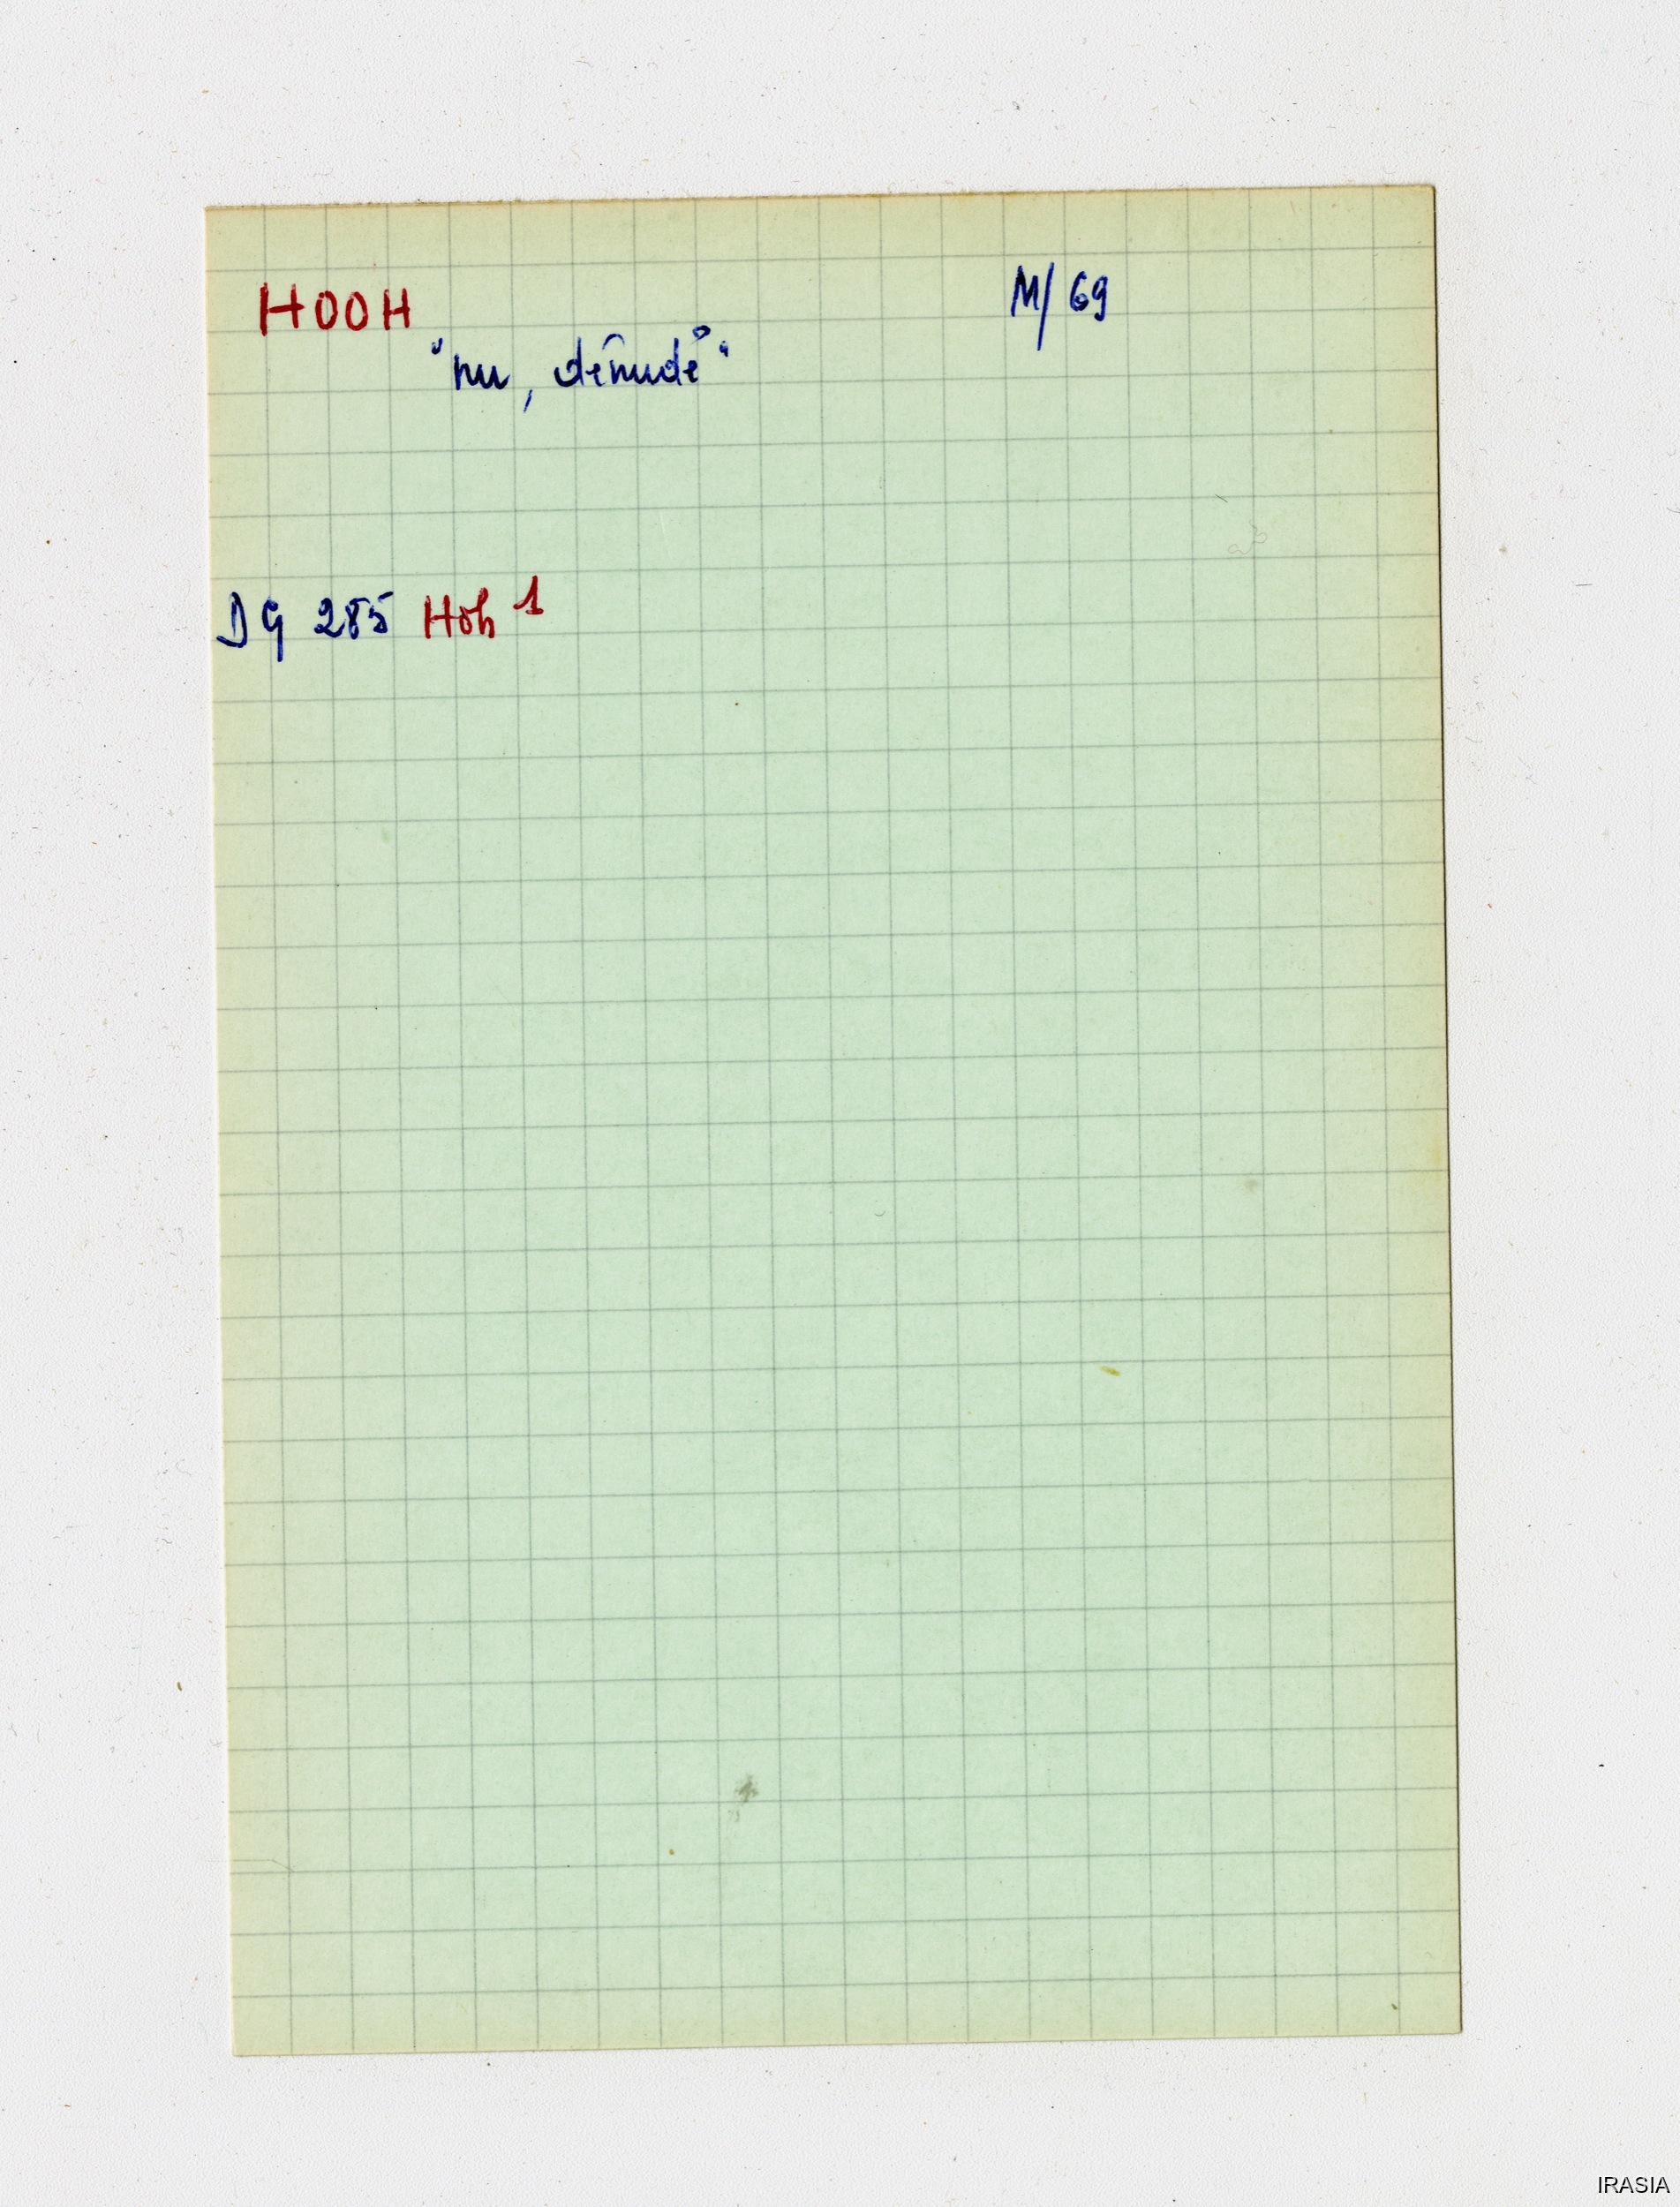 HOOH
M/69
"nu, dénudé"
DG 285 Hoh 1
IRASIA